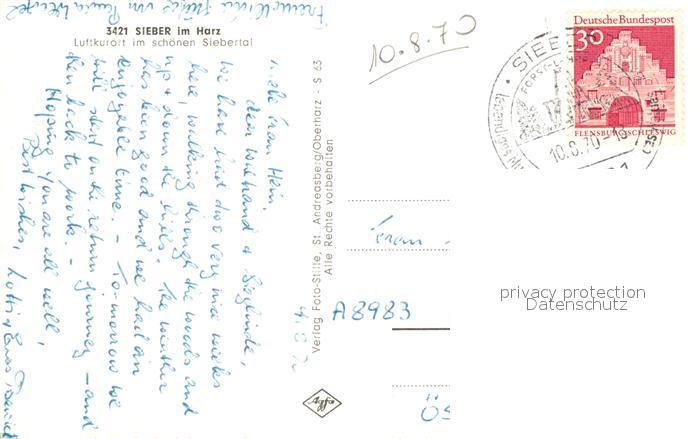 3421 SIEBER im Harz
Luftkurort im schönen Siebertal
Liebe Frau Hein,
dear husband & Sieglinde,
We have had two very nice weeks
here, walking through the woods and
up & down the hills. The weather
has been good and we had an
enjoyable time. – To-morrow we
will start on the return journey – and
then back to work. –
Hoping you are all well,
Best wishes,
Verlag Foto-Stille, St. Andreasberg/Oberharz - S 63
Alle Rechte vorbehalten
Agfa
10.8.70
Deutsche Bundespost
30
FLENSBURG/SCHLESWIG
SIEBER
10.8.70-18
Frau
A8983
ÖS
privacy protection
Datenschutz